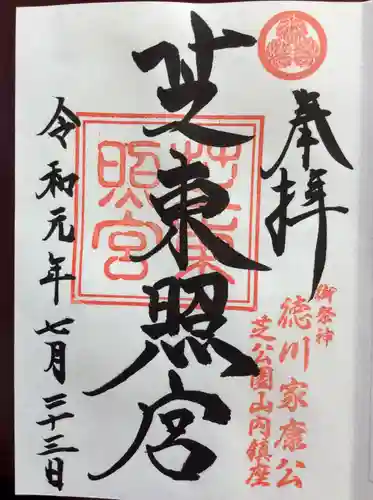 奉拝
御祭神
徳川家康公
芝公園山内鎮座
芝東照宮
芝東照宮
令和元年七月二十三日